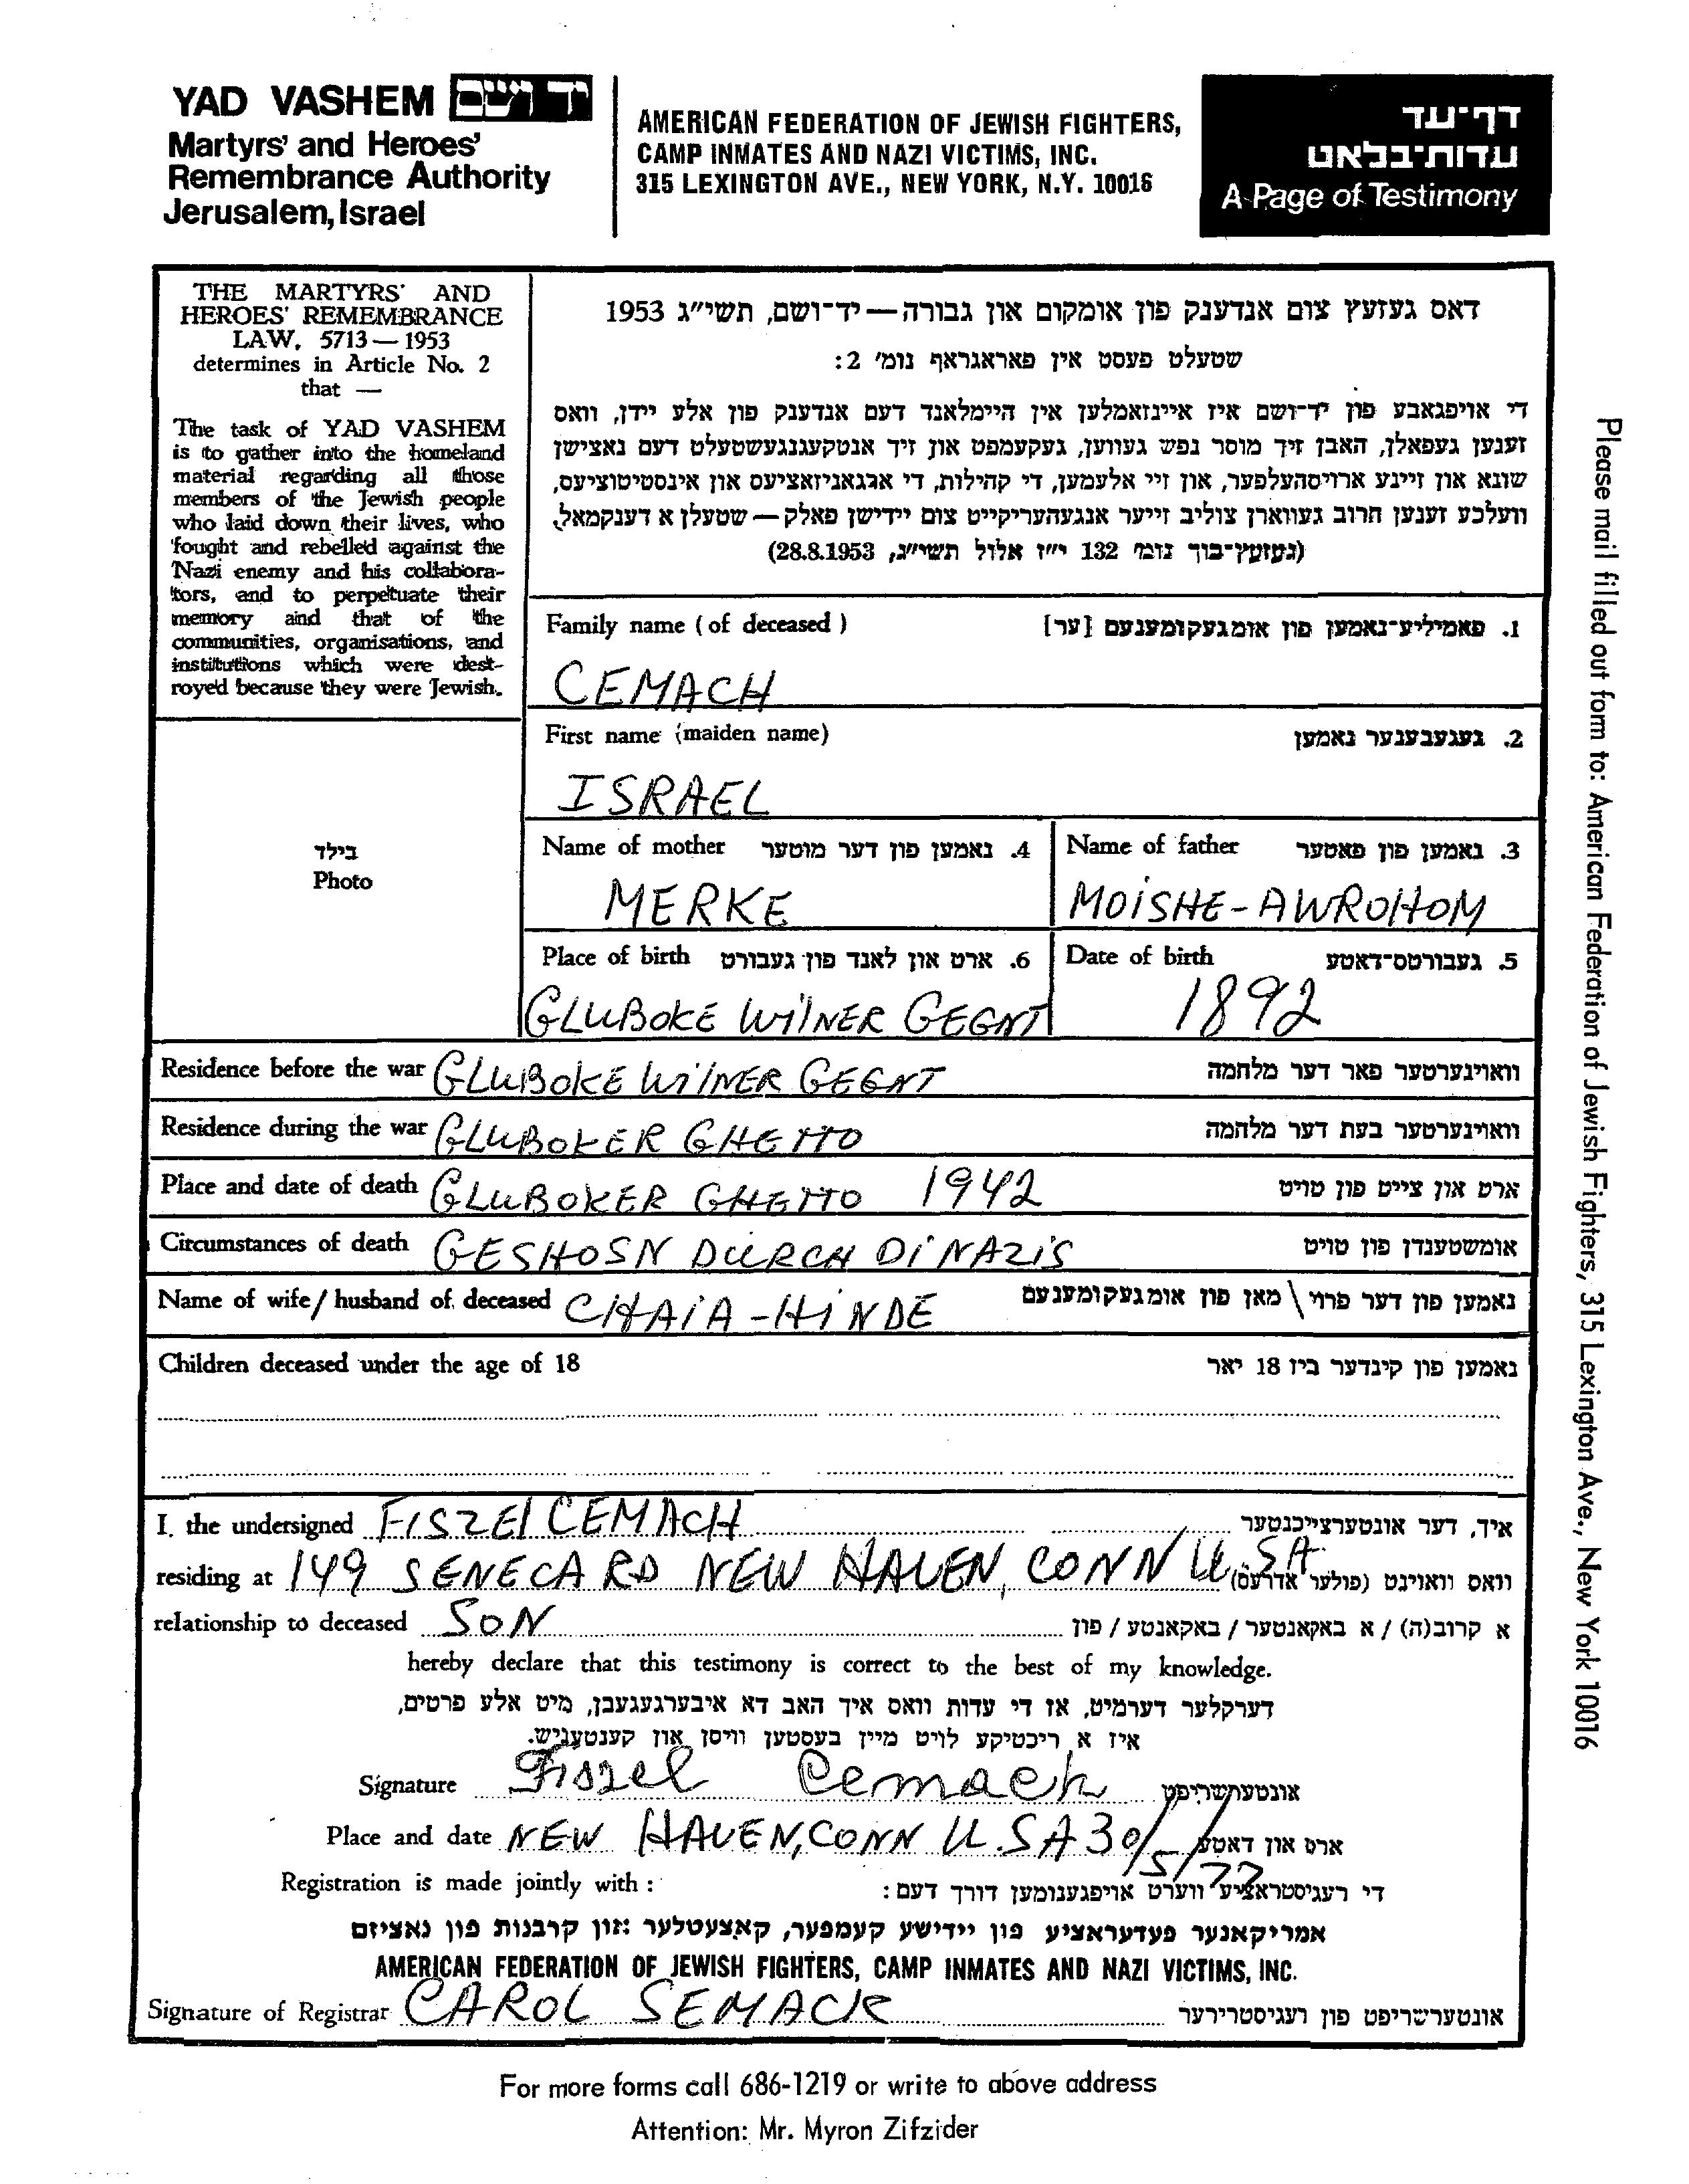 YAD VASHEM יד ושם
Martyrs' and Heroes'
Remembrance Authority
Jerusalem, Israel
AMERICAN FEDERATION OF JEWISH FIGHTERS,
CAMP INMATES AND NAZI VICTIMS, INC.
315 LEXINGTON AVE., NEW YORK, N.Y. 10016
דף-עד
עדות-בלאט
A Page of Testimony
THE MARTYRS' AND
HEROES' REMEMBRANCE
LAW, 5713—1953
determines in Article No. 2
that —
The task of YAD VASHEM
is to gather into the homeland
material regarding all those
members of the Jewish people
who laid down their lives, who
fought and rebelled against the
Nazi enemy and his collabora-
tors, and to perpetuate their
memory and that of the
communities, organisations, and
institutions which were dest-
royed because they were Jewish.
דאס געזעץ צום אנדענק פון אומקום און גבורה—יד-ושם, תשי״ג 1953
שטעלט פעסט אין פאראגראף נומ׳ 2:
די אויפגאבע פון יד-ושם איז איינזאמלען אין היימלאנד דעם אנדענק פון אלע יידן, וואס
זענען געפאלן, האבן זיך מוסר נפש געווען, געקעמפט און זיך אנטקעגנגעשטעלט דעם נאצישן
שונא און זיינע ארויסהעלפער, און זיי אלעמען, די קהילות, די ארגאניזאציעס און אינסטיטוציעס,
וועלכע זענען חרוב געווארן צוליב זייער אנגעהעריקייט צום יידישן פאלק — שטעלן א דענקמאל.
(געזעץ-בוך נומ׳ 132 י״ז אלול תשי״ג, 28.8.1953)
Family name (of deceased) 1. פאמיליע-נאמען פון אומגעקומענעם [ער]
CEMACH
First name (maiden name) 2. געגעבענער נאמען
ISRAEL
בילד
Photo
Name of mother 4. נאמען פון דער מוטער
MERKE
Name of father 3. נאמען פון פאטער
MOISHE-AWROHOM
Place of birth 6. ארט און לאנד פון געבורט
GLUBOKE WILNER GEGNT
Date of birth 5. געבורטס-דאטע
1892
Residence before the war GLUBOKE WILNER GEGNT וואוינערטער פאר דער מלחמה
Residence during the war GLUBOKER GHETTO וואוינערטער בעת דער מלחמה
Place and date of death GLUBOKER GHETTO 1942 ארט און צייט פון טויט
Circumstances of death GESHOSN DURCH DI NAZIS אומשטענדן פון טויט
Name of wife/husband of deceased CHAIA-HINDE נאמען פון דער פרוי\מאן פון אומגעקומענעם
Children deceased under the age of 18 נאמען פון קינדער ביז 18 יאר
I, the undersigned FISZEl CEMACH איך, דער אונטערצייכנטער
residing at 149 SENECA RD NEW HAVEN, CONN U.SA. וואס וואוינט (פולער אדרעס)
relationship to deceased SON א קרוב(ה) / א באקאנטער / באקאנטע / פון
hereby declare that this testimony is correct to the best of my knowledge.
דערקלער דערמיט, אז די עדות וואס איך האב דא איבערגעגעבן, מיט אלע פרטים,
איז א ריכטיקע לויט מיין בעסטען וויסן און קענטעניש.
Signature Fiszel Cemach אונטערשריפט
Place and date NEW HAVEN, CONN U.SA 30/5/77 ארט און דאטע
Registration is made jointly with: די רעגיסטראציע ווערט אויפגענומען דורך דעם:
אמריקאנער פעדעראציע פון יידישע קעמפער, קאצעטלער און קרבנות פון נאציזם
AMERICAN FEDERATION OF JEWISH FIGHTERS, CAMP INMATES AND NAZI VICTIMS, INC.
Signature of Registrar CAROL SEMACK אונטערשריפט פון רעגיסטרירער
For more forms call 686-1219 or write to above address
Attention: Mr. Myron Zifzider
Please mail filled out form to: American Federation of Jewish Fighters, 315 Lexington Ave., New York 10016